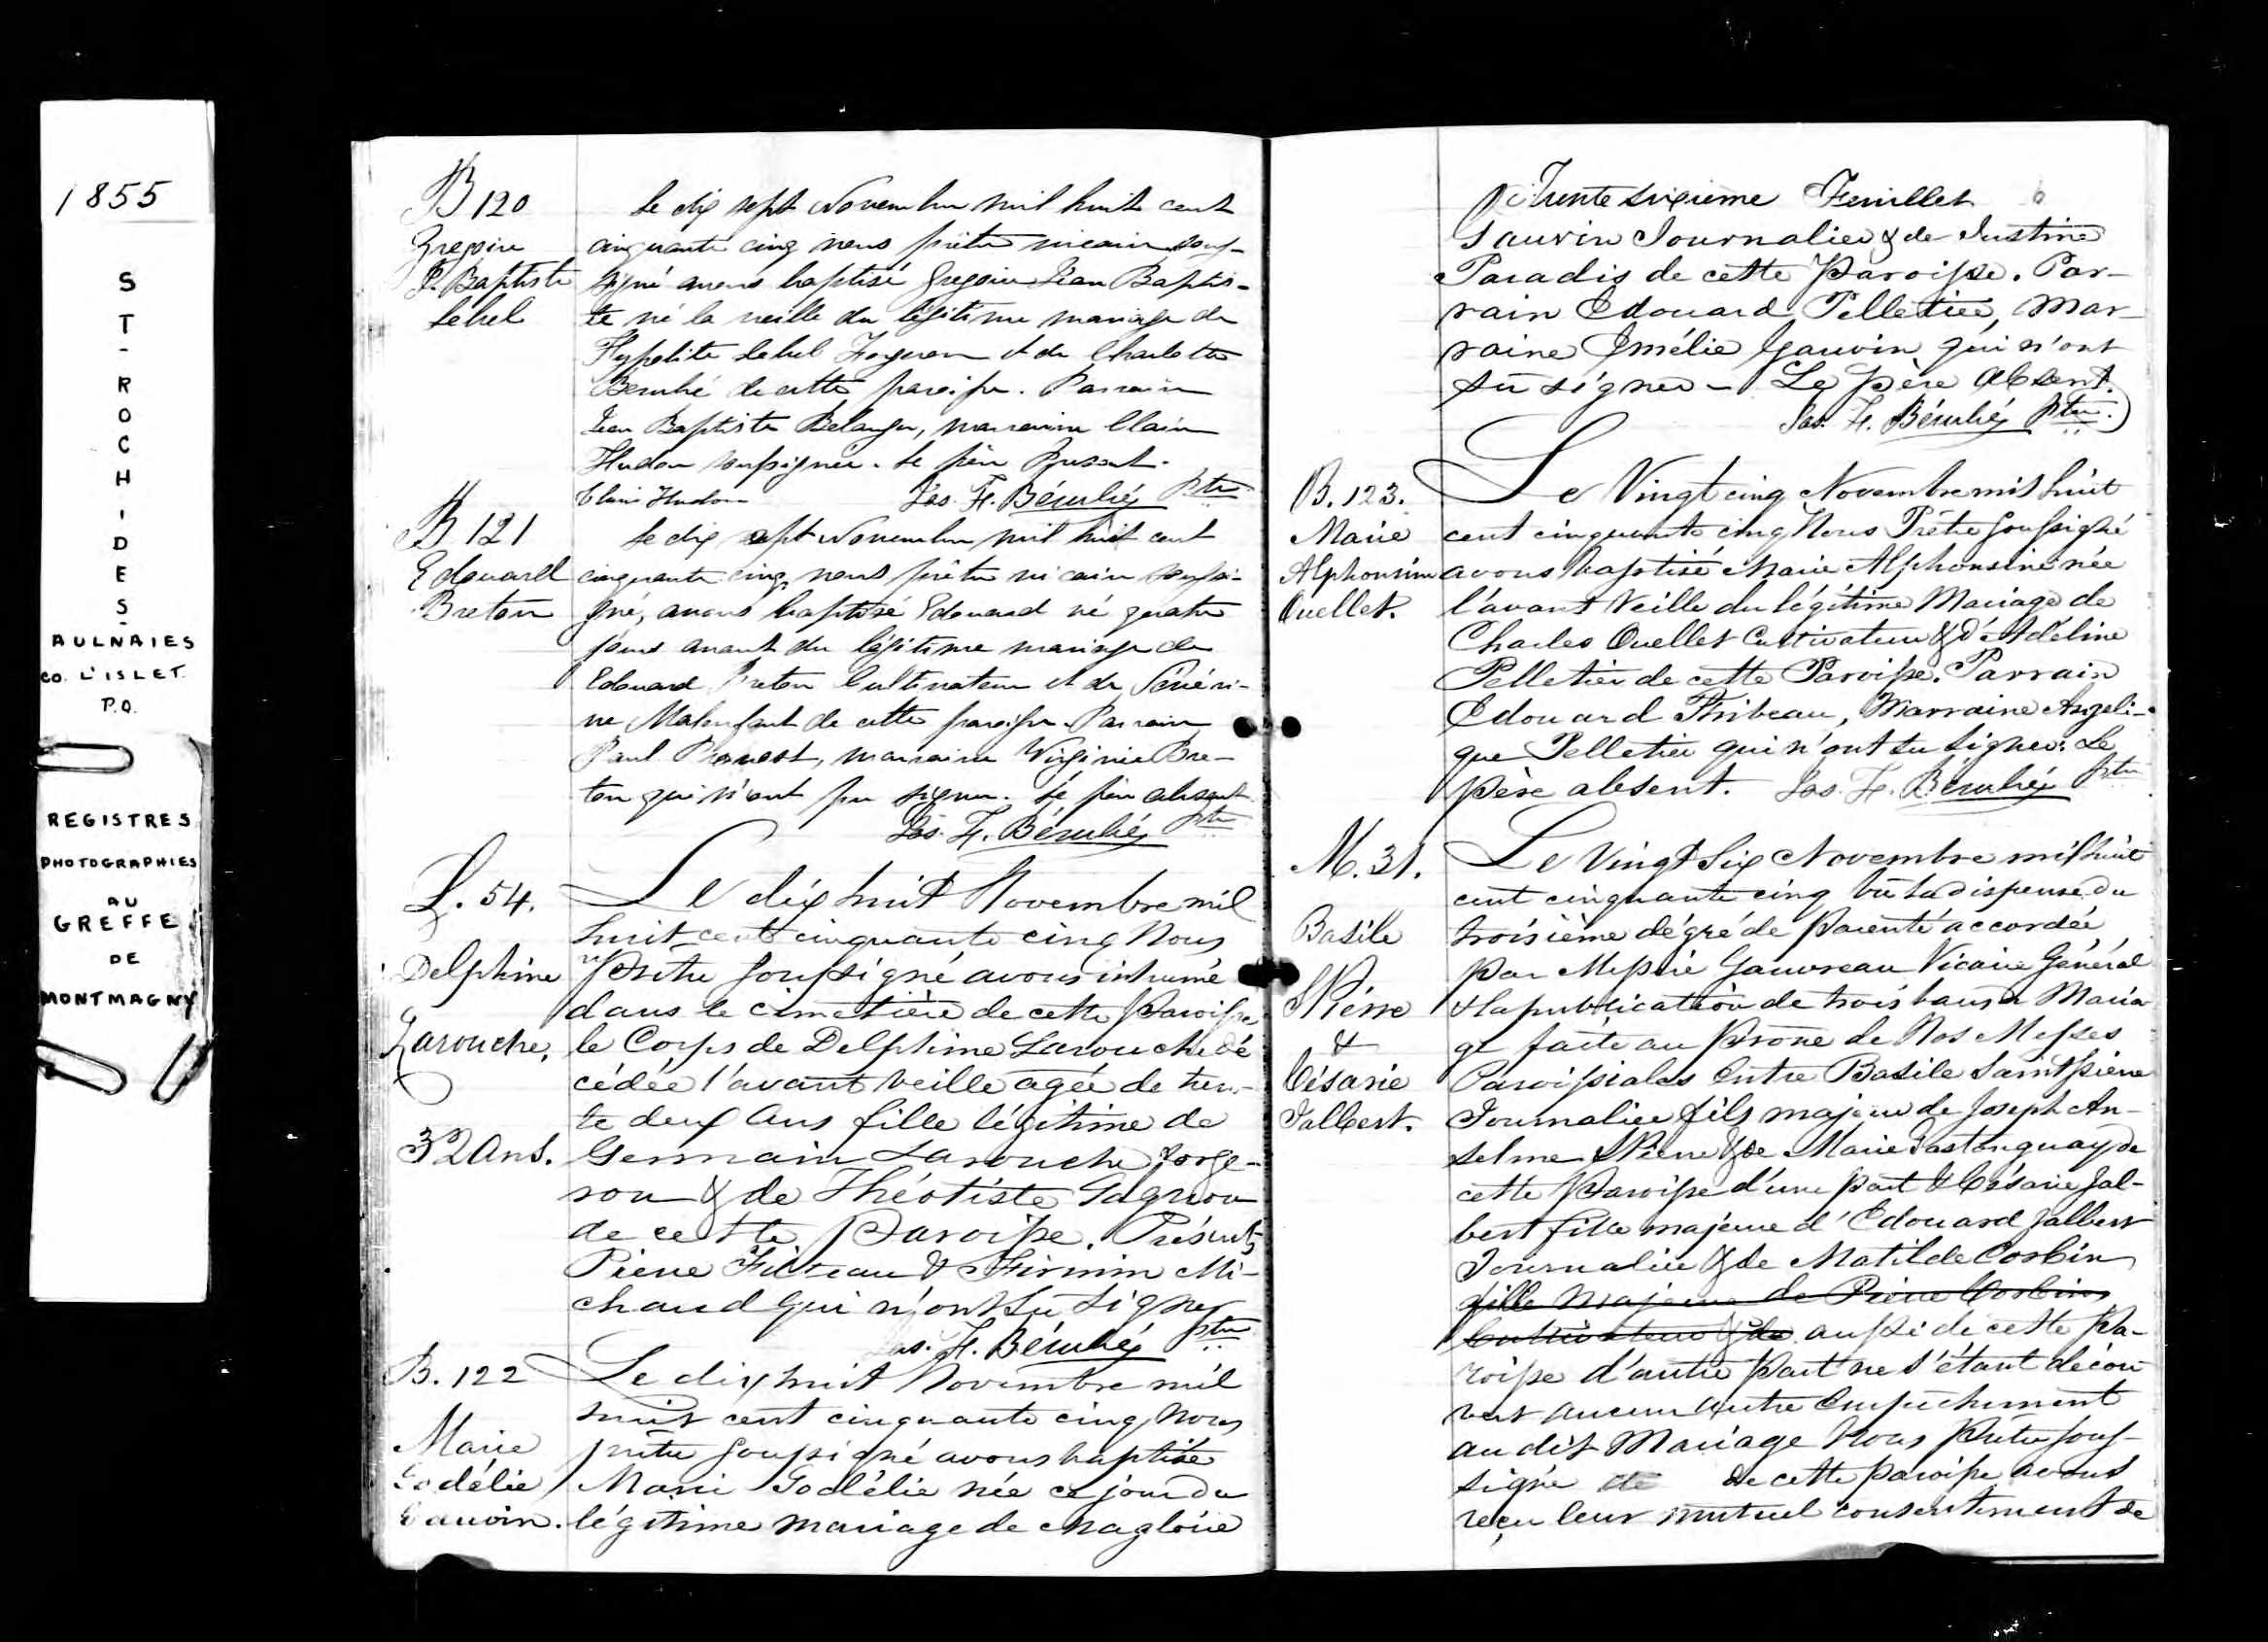 1855
ST-ROCH-DES-
AULNAIES
CO. L'ISLET.
P.Q.
REGISTRES
PHOTOGRAPHIES
AU
GREFFE
DE
MONTMAGNY
B 120
Gregoire
J. Baptiste
Lebel
Le dix sept Novembre mil huit cent
cinquante cinq nous prêtre vicaire sous-
signé avons baptisé Gregoire Jean Baptis-
te né la veille du légitime mariage de
Hypolite Lebel Forgeron et de Charlotte
Berubé de cette paroisse. Parrain
Jean Baptiste Belanger, marraine Claire
Hudon soussignée. Le père Présent.
Claire Hudon Jos. H. Bérubé, ptre
B 121
Edouard
Breton
Le dix sept Novembre mil huit cent
cinquante cinq, nous prêtre vicaire soussi-
gné, avons baptisé Edouard né quatre
jours avant du légitime mariage de
Edouard Breton Cultivateur et de Sévéri-
ne Malenfant de cette paroisse. Parrain
Paul marraine Virginie Bre-
ton qui n'ont pu signer. Le père absent
Jos. H. Bérubé, ptre
L. 54.
Delphine
Larouche,
32 Ans.
Le dix huit Novembre mil
huit cent cinquante cinq Nous
Prêtre soussigné avons inhumé
dans le cimetière de cette Paroisse
le Corps de Delphine Larouche dé
cédée l'avant veille agée de tren-
te deux ans fille légitime de
Germain Larouche forge-
ron & de Théotiste Gagnon
de cette Paroisse. Présents
Pierre & Firmin Mi-
chaud qui n'ont su signer
Jos. H. Bérubé, ptre
B. 122
Marie
Godélie
Gauvin.
Le dix huit Novembre mil
huit cent cinquante cinq Nous
prêtre soussigné avons baptisé
Marie Godélie née ce jour du
légitime mariage de Magloire
Trente sixième Feuillet
Gauvin Journalier & de Justine
Paradis de cette Paroisse. Par-
rain Edouard Pelletier, Mar-
raine Emélie Gauvin qui n'ont
su signer - Le père absent.
Jos. H. Bérubé, Ptre.
B. 123.
Marie
Alphonsine
Ouellet.
Le Vingt cinq Novembre mil huit
cent cinquante cinq Nous Prêtre soussigné
avons baptisé Marie Alphonsine née
l'avant veille du légitime Mariage de
Charles Ouellet Cultivateur & d'Adéline
Pelletier de cette Paroisse. Parrain
Edouard Thibeau, Marraine Angeli-
que Pelletier qui n'ont su signer. Le
père absent. Jos. H. Bérubé, ptre
M. 31.
Basile
St Pierre
&
Césarie
Jalbert.
Le Vingt six Novembre mil huit
cent cinquante cinq Vu la dispense du
troisième dégré de Parenté accordée
par Messire Gauvreau Vicaire Général
& la publication de trois bans de Maria
ge faite au Prone de Nos Messes
Paroissiales Entre Basile Saint pierre
Journalier fils majeur de Joseph An-
selme St Pierre & de Marie Gastonguay de
cette Paroisse d'une part & Césarie Jal-
bert fille majeure d'Edouard Jalbert
Journalier & de Matilde Corbin
fille majeure de Pierre Corbin
Cultivateur & de aussi de cette Pa-
roisse d'autre part ne s'étant décou
vert aucun autre Empêchement
au dit Mariage Nous Prêtre sous-
signé de cette paroisse avons
reçu leur mutuel consentement de